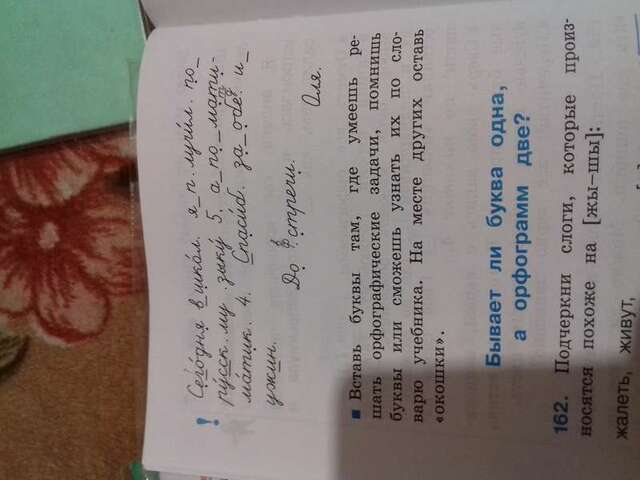 ! Сегодня в_школ. я_п.лучил. по_
русск.му .зыку 5. а_по_мати-
матик. 4. Спасиб. за_обет и_
ужин.
До встречи.
Оля.
▪ Вставь буквы там, где умеешь ре-
шать орфографические задачи, помнишь
буквы или сможешь узнать их по сло-
варю учебника. На месте других оставь
«окошки».
Бывает ли буква одна,
а орфограмм две?
162. Подчеркни слоги, которые произ-
носятся похоже на [жы–шы]:
жалеть, живут,